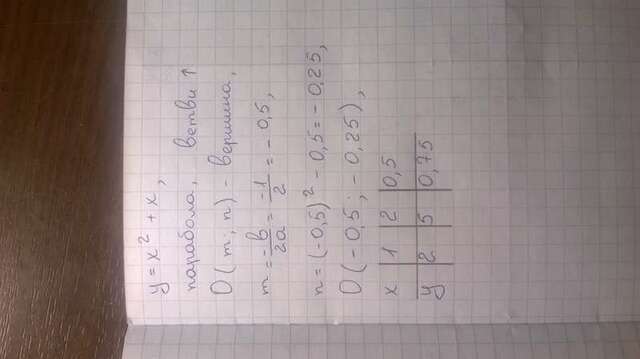 y = x² + x,
парабола, ветви ↑
O(m; n) - вершина,
m = -b/2a = -1/2 = -0,5,
n = (-0,5)² - 0,5 = -0,25,
O(-0,5; -0,25),
x | 1 | 2 | 0,5
y | 2 | 5 | 0,75